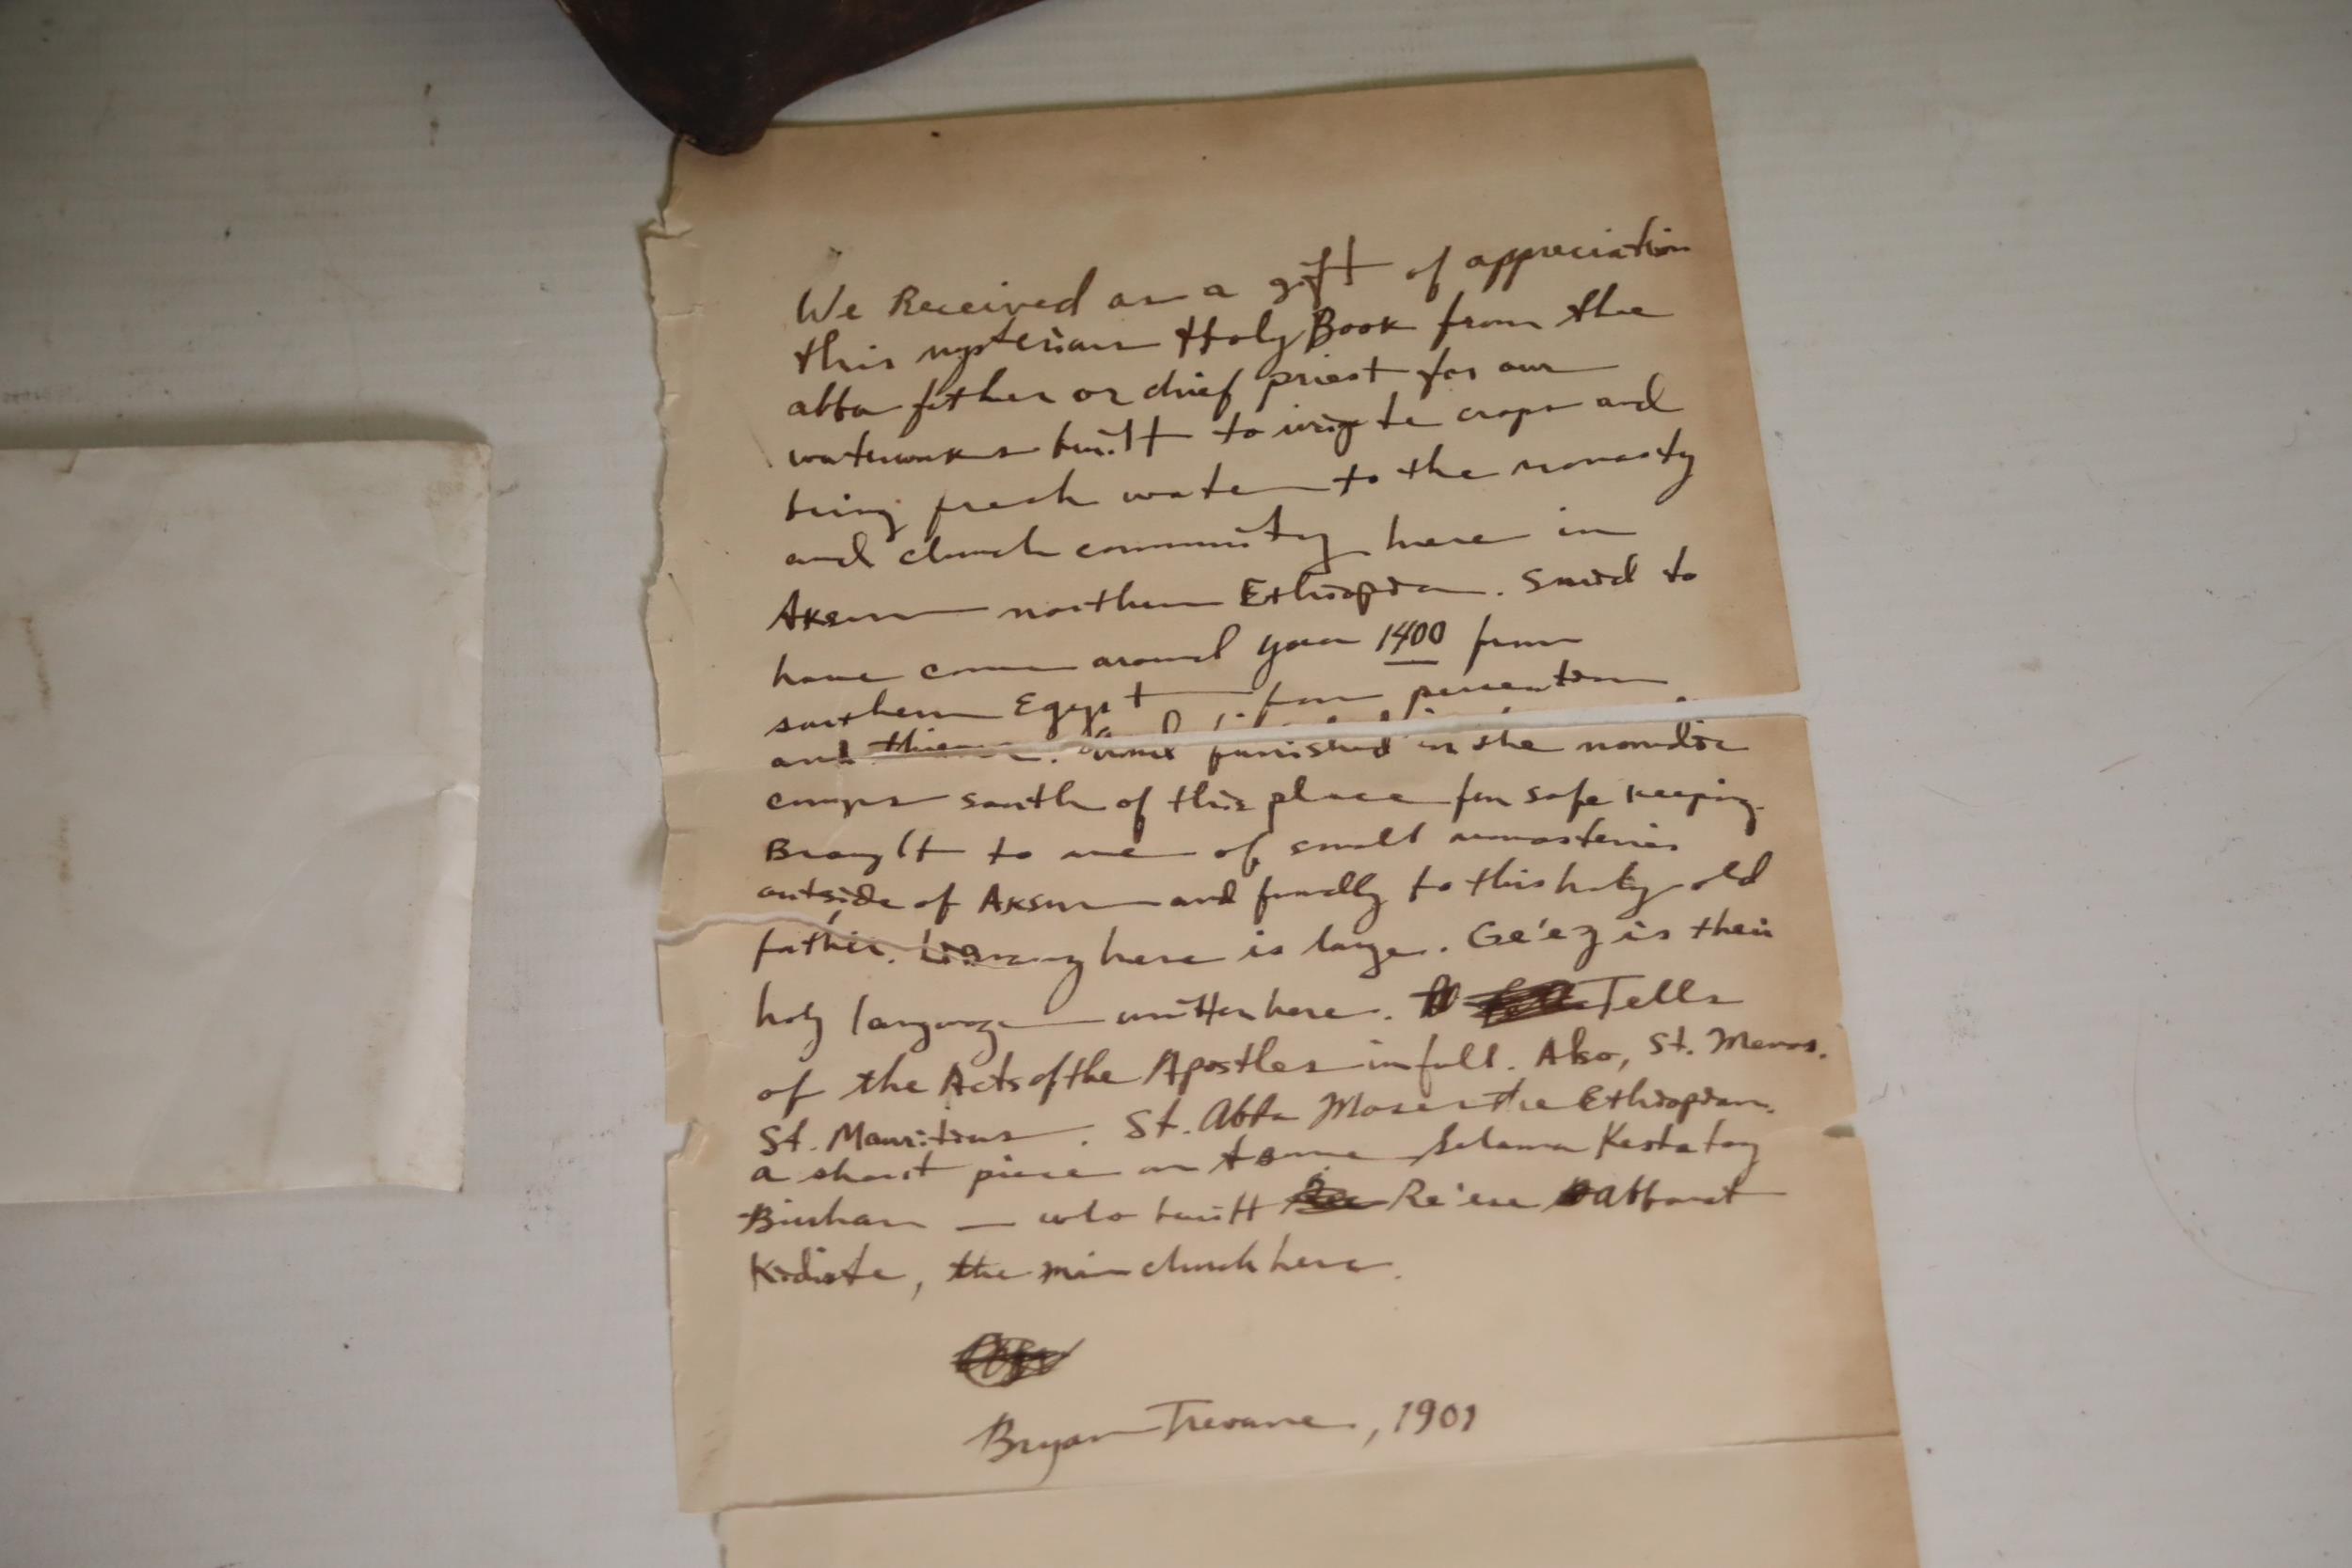 We Received as a gift of appreciation
this mysterious Holy Book from the
abba father or chief priest for our
waterworks built to irrigate crops and
bring fresh water to the monasty
and church community here in
Aksum northern Ethiopia. Said to
have come around year 1400 from
southern Egypt
and furnished in the nomadic
camps south of this place for safe keeping.
Brought to one of small monasteries
outside of Aksum and finally to this holy old
father. Library here is large. Ge'ez is their
holy language written here. Tells
of the Acts of the Apostles in full. Also, St. Menas.
St. Mauritius. St. Abba Moses the Ethiopian.
a short piece on Selama
who built Re'ese
Kidiste, the main church here.
Bryan Trevane, 1901